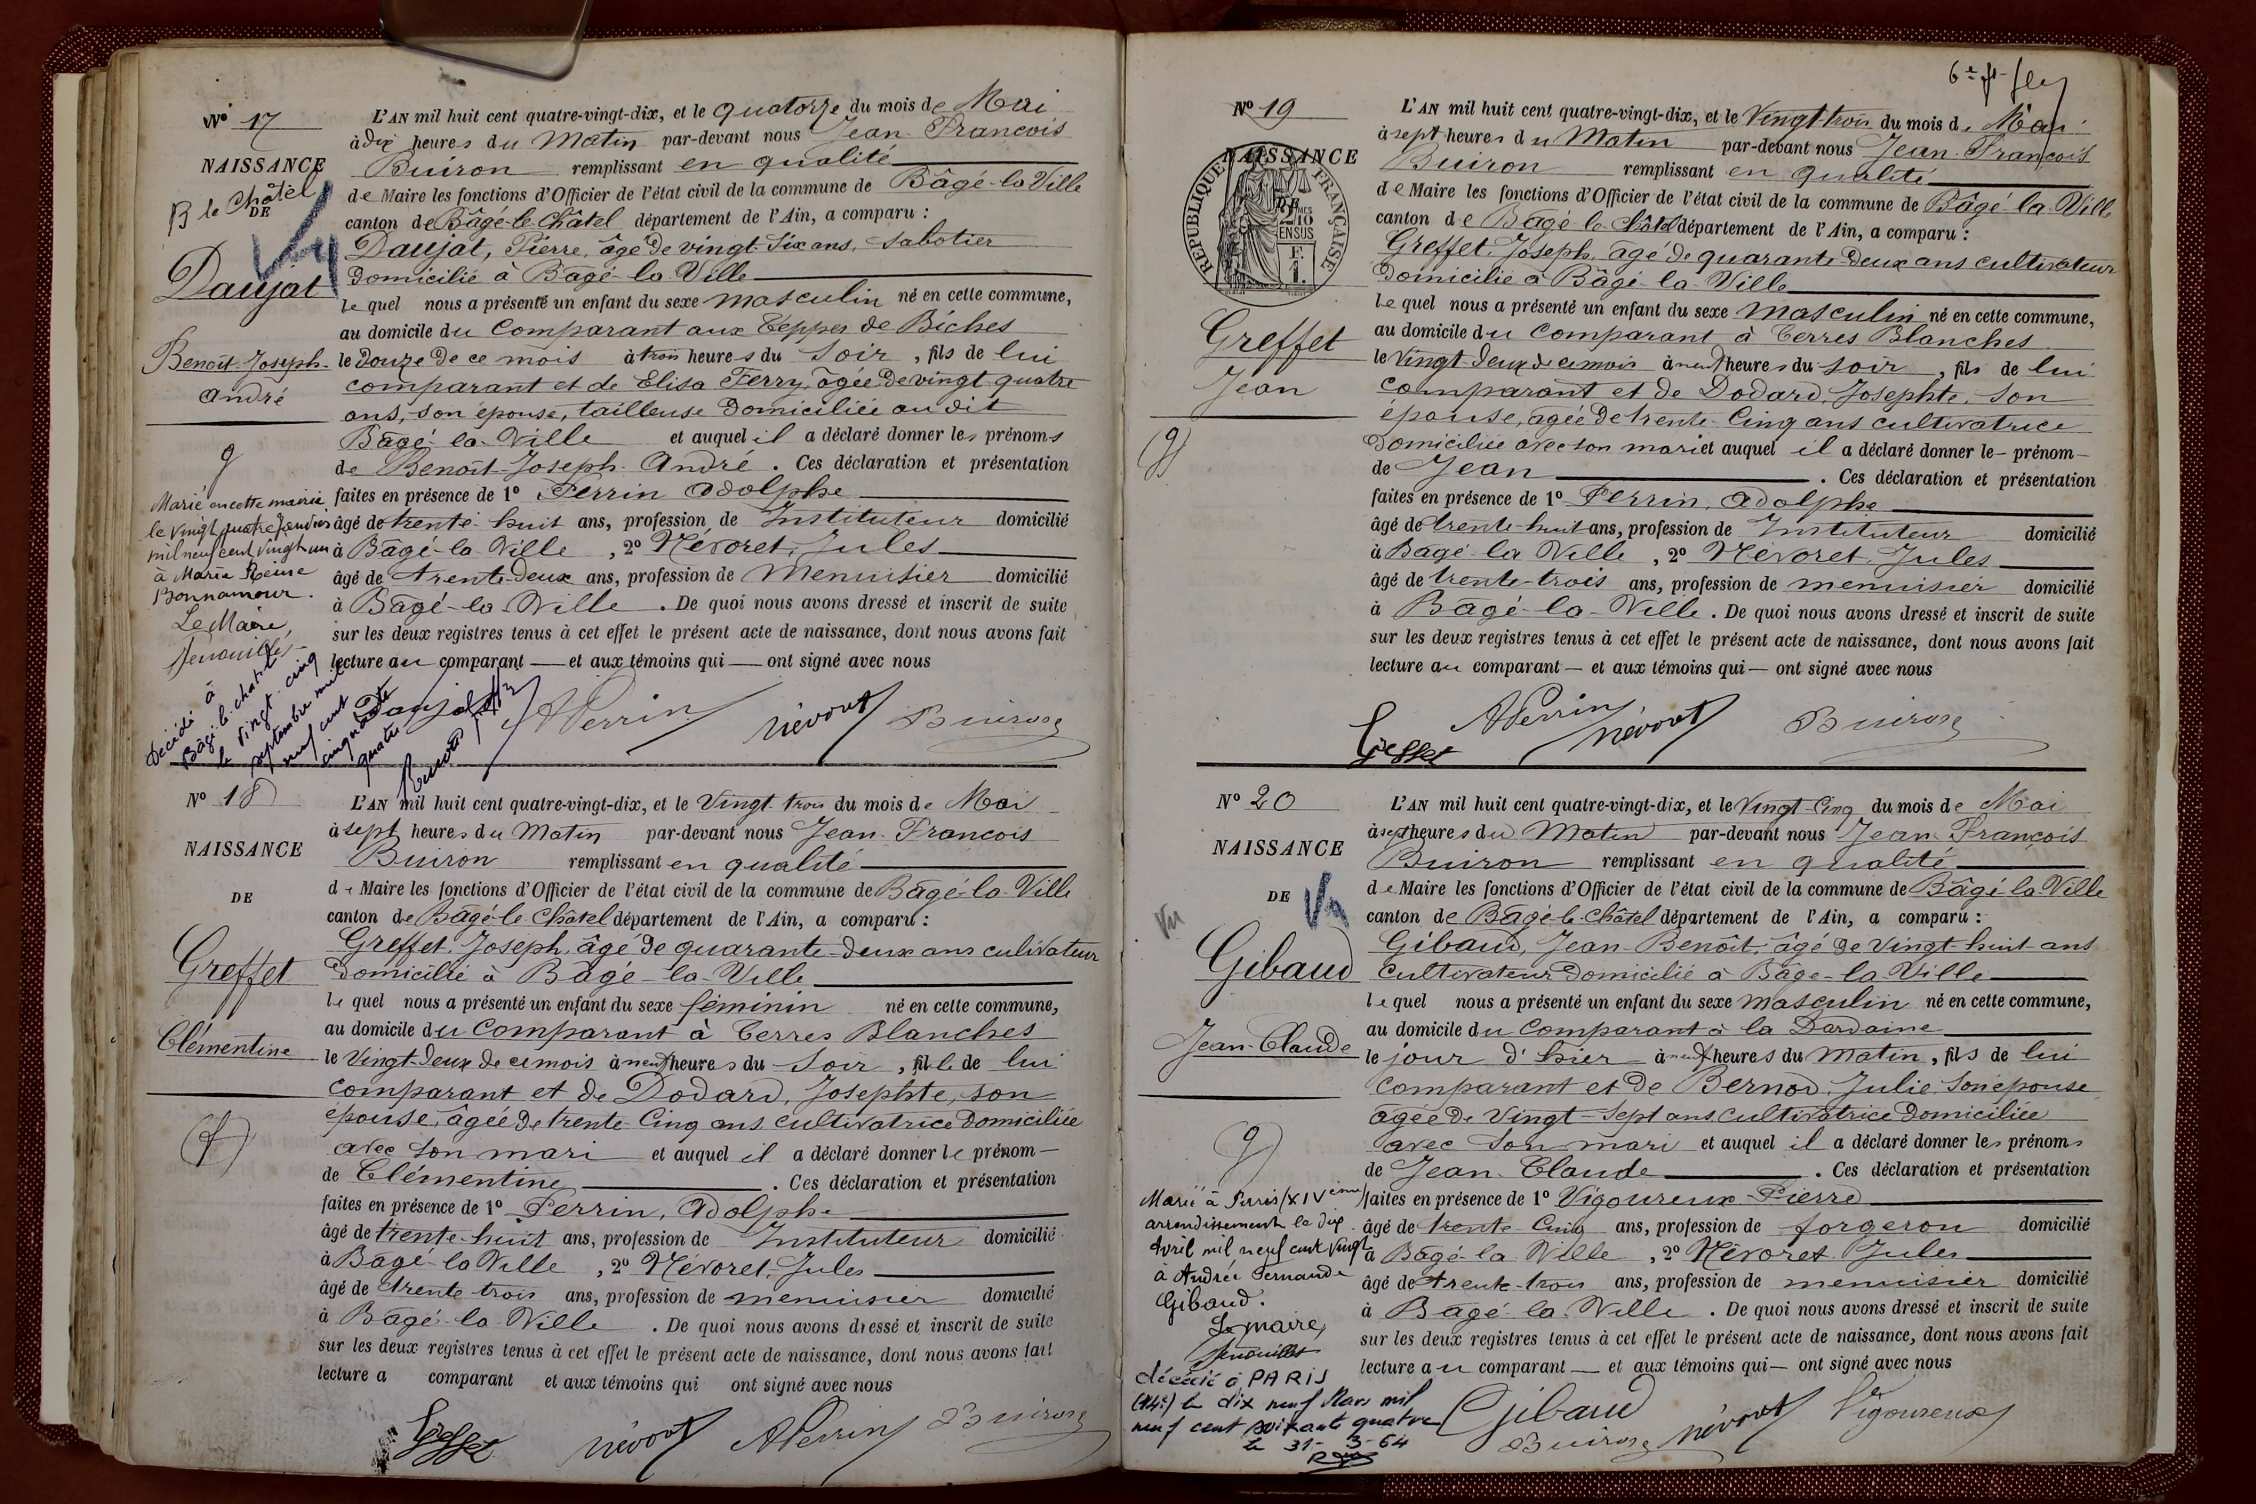 N° 17
NAISSANCE
B le Châtel
DE
Vu
Daujat
Benoit-Joseph-
André
g
Marié en cette mairie
le vingt quatre Janvier
mil neuf cent vingt un
à Marie Reine
Bonnamour.
Le Maire,
Décédé à
Bâgé-le-chatel
le vingt cinq
septembre mil
neuf cent
cinquante
quatre
L'AN mil huit cent quatre-vingt-dix, et le quatorze du mois de Mai
à dix heures du Matin par-devant nous Jean François
Buiron remplissant en qualité
de Maire les fonctions d'Officier de l'état civil de la commune de Bâgé-la-Ville
canton de Bâgé-le-Châtel département de l'Ain, a comparu :
Daujat, Pierre, âgé de vingt-six ans, sabotier
domicilié à Bâgé-la-Ville
le quel nous a présenté un enfant du sexe masculin né en cette commune,
au domicile du Comparant aux Teppes de Biches
le douze de ce mois à trois heures du Soir, fils de lui
comparant et de Elisa Ferry, âgée de vingt quatre
ans, son épouse, tailleuse domiciliée au dit
Bâgé-la-Ville et auquel il a déclaré donner les prénoms
de Benoit-Joseph-André. Ces déclaration et présentation
faites en présence de 1° Perrin Adolphe
âgé de trente-huit ans, profession de Instituteur domicilié
à Bâgé-la-Ville, 2° Névoret, Jules
âgé de trente-deux ans, profession de Menuisier domicilié
à Bâgé-la-Ville. De quoi nous avons dressé et inscrit de suite
sur les deux registres tenus à cet effet le présent acte de naissance, dont nous avons fait
lecture au comparant — et aux témoins qui — ont signé avec nous
Daujat APerrin Névoret Buiron
N° 18
NAISSANCE
DE
Greffet
Clémentine
(f)
L'AN mil huit cent quatre-vingt-dix, et le Vingt-trois du mois de Mai
à sept heures du Matin par-devant nous Jean-François
Buiron remplissant en qualité
de Maire les fonctions d'Officier de l'état civil de la commune de Bâgé-la-Ville
canton de Bâgé-le-Châtel département de l'Ain, a comparu :
Greffet, Joseph, âgé de quarante-deux ans cultivateur
domicilié à Bâgé-la-Ville
le quel nous a présenté un enfant du sexe féminin né en cette commune,
au domicile du Comparant à Terres Blanches
le Vingt-deux de ce mois à neuf heures du Soir, fille de lui
comparant et de Dodard, Josephte, son
épouse, âgée de trente-Cinq ans, cultivatrice domiciliée
avec son mari et auquel il a déclaré donner le prénom -
de Clémentine. Ces déclaration et présentation
faites en présence de 1° Perrin, Adolphe
âgé de trente-huit ans, profession de Instituteur domicilié
à Bâgé-la-Ville, 2° Névoret, Jules
âgé de trente-trois ans, profession de menuisier domicilié
à Bâgé-la-Ville. De quoi nous avons dressé et inscrit de suite
sur les deux registres tenus à cet effet le présent acte de naissance, dont nous avons fait
lecture a comparant et aux témoins qui ont signé avec nous
Greffet Névoret APerrin Buiron
N° 19
NAISSANCE
DE
RÉPUBLIQUE FRANÇAISE
2 10MES
EN SUS
F.
1.
Greffet
Jean
(g)
L'AN mil huit cent quatre-vingt-dix, et le Vingt-trois du mois de Mai
à sept heures du Matin par-devant nous Jean-François
Buiron remplissant en qualité
de Maire les fonctions d'Officier de l'état civil de la commune de Bâgé-la-Ville
canton de Bâgé-le-Châtel département de l'Ain, a comparu :
Greffet, Joseph, âgé de quarante-deux ans cultivateur
domicilié à Bâgé-la-Ville
le quel nous a présenté un enfant du sexe Masculin né en cette commune,
au domicile du Comparant à Terres Blanches
le Vingt-deux de ce mois à neuf heures du Soir, fils de lui
comparant et de Dodard, Josephte, son
épouse, âgée de trente-Cinq ans cultivatrice
domiciliée avec son mari et auquel il a déclaré donner le - prénom -
de Jean. Ces déclaration et présentation
faites en présence de 1° Perrin, Adolphe
âgé de trente-huit ans, profession de Instituteur domicilié
à Bâgé-la-Ville, 2° Névoret, Jules
âgé de trente-trois ans, profession de menuisier domicilié
à Bâgé-la-Ville. De quoi nous avons dressé et inscrit de suite
sur les deux registres tenus à cet effet le présent acte de naissance, dont nous avons fait
lecture au comparant — et aux témoins qui — ont signé avec nous
Greffet APerrin Névoret Buiron
N° 20
NAISSANCE
DE
Vu
Vu
Gibaud
Jean-Claude
g
Marié à Paris (XIVème)
arrondissement le dix
Avril mil neuf cent vingt
à Andrée Fernande
Gibaud.
Le maire,
décédé à PARIS
(14e) le dix neuf Mars mil
neuf cent soixante quatre
le 31-3-64
L'AN mil huit cent quatre-vingt-dix, et le Vingt-Cinq du mois de Mai
à sept heures du Matin par-devant nous Jean-François
Buiron remplissant en qualité
de Maire les fonctions d'Officier de l'état civil de la commune de Bâgé-la-Ville
canton de Bâgé-le-Châtel département de l'Ain, a comparu :
Gibaud, Jean-Benoît, âgé de Vingt-huit ans
Cultivateur domicilié à Bâgé-la-Ville
le quel nous a présenté un enfant du sexe masculin né en cette commune,
au domicile du Comparant à la Dardaine
le jour d'hier à neuf heures du Matin, fils de lui
comparant et de Bernod, Julie, son épouse
âgée de Vingt-Sept ans cultivatrice domiciliée
avec Son mari et auquel il a déclaré donner les prénoms
de Jean-Claude. Ces déclaration et présentation
faites en présence de 1° Vigoureux-Pierre
âgé de trente-Cinq ans, profession de forgeron domicilié
à Bâgé-la-Ville, 2° Névoret Jules
âgé de trente-trois ans, profession de menuisier domicilié
à Bâgé-la-Ville. De quoi nous avons dressé et inscrit de suite
sur les deux registres tenus à cet effet le présent acte de naissance, dont nous avons fait
lecture au comparant — et aux témoins qui — ont signé avec nous
Gibaud Buiron Névoret Vigoureux